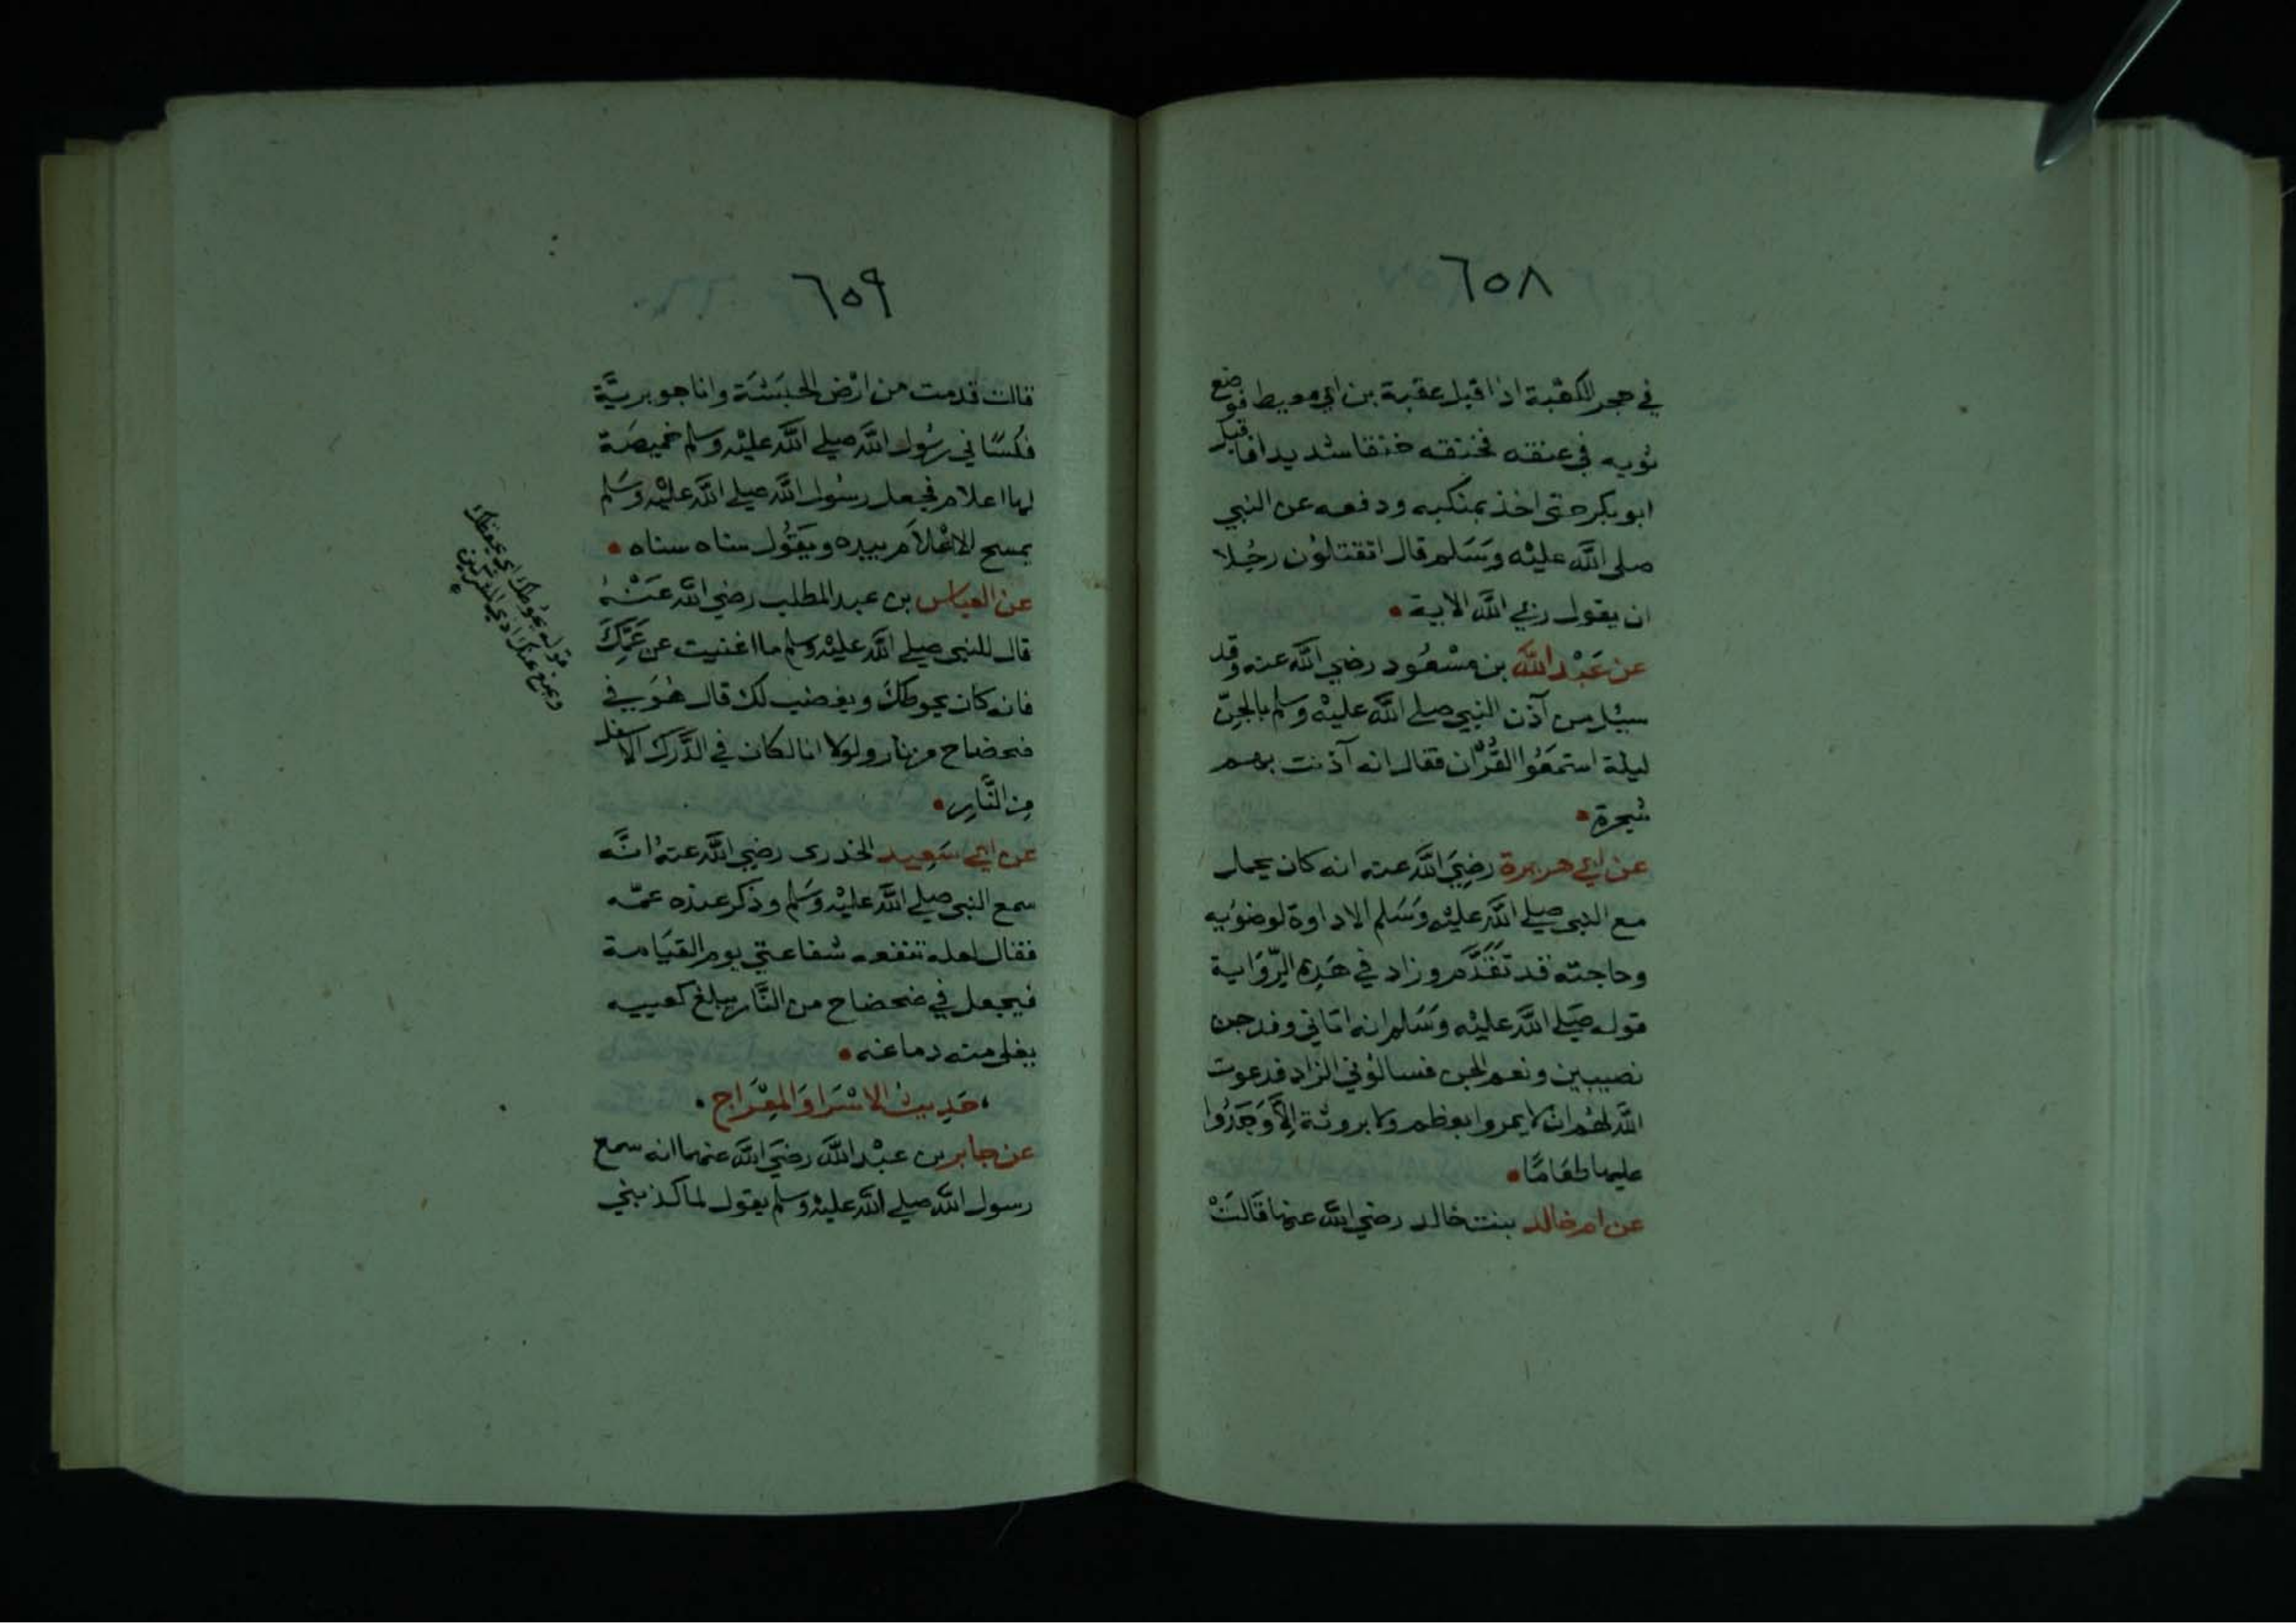 ٦٥٨
في حجر الكعبة اذا اقبل عقبة بن ابي معيط فوضع
ثوبه في عنقه فخنقه خنقا شديدا فاقبل
ابو بكر حتى اخذ بمنكبيه ودفعه عن النبي
صلى اللَّه عليْه وسَسَلم قال اتقتلوُن رجُلا
ان يقول ربي اللَّه الاية •
عن عَبْد اللَّه بن مسْعُود رضي اللَّه عنه وقد
سيُل من آذن النبي صلے اللَّه عليْه وسلم بالجنّ
ليلة استمَعُوا القُرْان فقال انه آذنت بهم
شجرة •
عن ابي هريرة رضِيَ اللَّه عنه انه كان يحمل
مع النبي صلے اللَّه عليْه وَسَلم الاداوة لوضوُيه
وحاجته قد تَقَدَّم وزاد في هَذِه الرّوَاية
قوله صَلے اللَّه عليْه وَسَلم انه اتاني وفد جن
نصيبين ونعم الجن فسالوُني الزاد فدعوت
اللَّه لهُم ان لا يمروا بعظم ولا بروثة اِلَّا وَجَدُوا
عليها طعَامًا •
عن ام خالد بنت خالد رضي اللَّه عنها قَالَتْ
٦٥٩
قالت قدمت من ارْض الحبَشَة وانا جويريَّة
فكسَاني رسُول اللَّه صلے اللَّه عليْه وسلم خميصَة
لها اعلام فجعل رسُول اللَّه صلے اللَّه عليْه وَسَلم
يمسح الاعْلاَم بيده ويَقُول سناه سناه •
عن العباس بن عبد المطلب رضي اللَّه عَنْهُ
قال للنبي صلے اللَّه عليْه وسلم ما اغنيت عن عَمِّكَ
فانه كان يحوطكَ ويغضب لك قال هُوَ في
ضحضاح من نار ولولا انا لكان في الدَّرَك الاسفل
مِن النَّارِ •
عن ابي سَعِيد الخدرى رضِي اللَّه عنهُ انَّه
سمع النبي صلے اللَّه عليْه وَسَلم وذكر عنده عمّه
فقال لعله تنفعه شفاعتي يوم القيَامة
فيجعل في ضحضاح من النَّار يبلغ كعبيه
يغلى منه دماغه •
حَدِيث الاسْرَا وَالمِعْرَاج •
عن جابر بن عبْد اللَّه رضَي اللَّه عنهما انه سمع
رسول اللَّه صلے اللَّه عليْه وَسلم يقول لما كذبني
قوله يحُوطك اي يحفظك
ويمنع عنك اذي المشركين